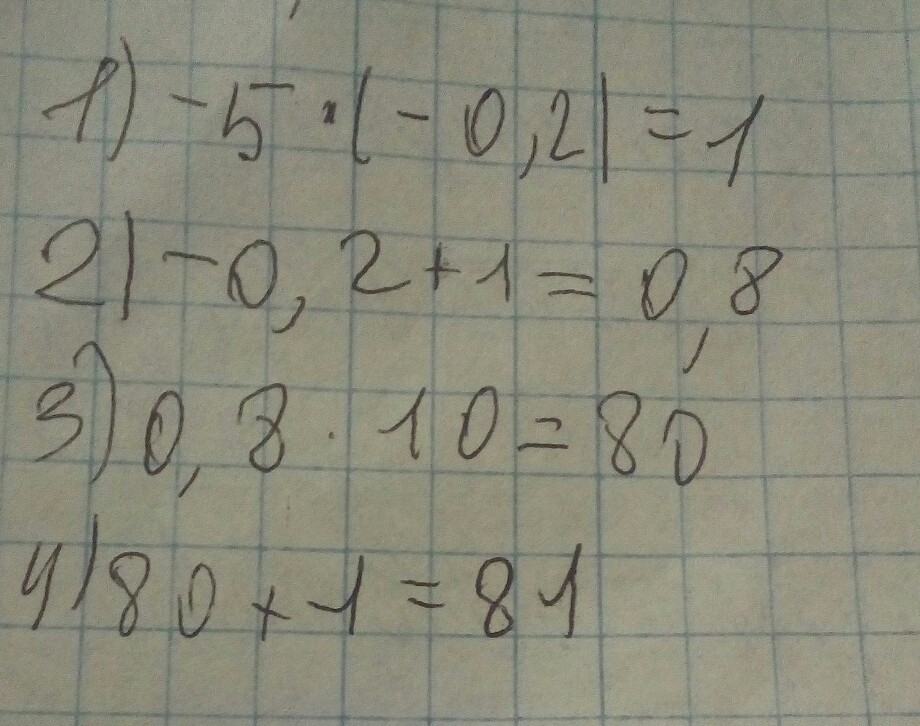 1) -5 · (-0,2) = 1
2) -0,2 + 1 = 0,8
3) 0,8 · 10 = 80
4) 80 + 1 = 81